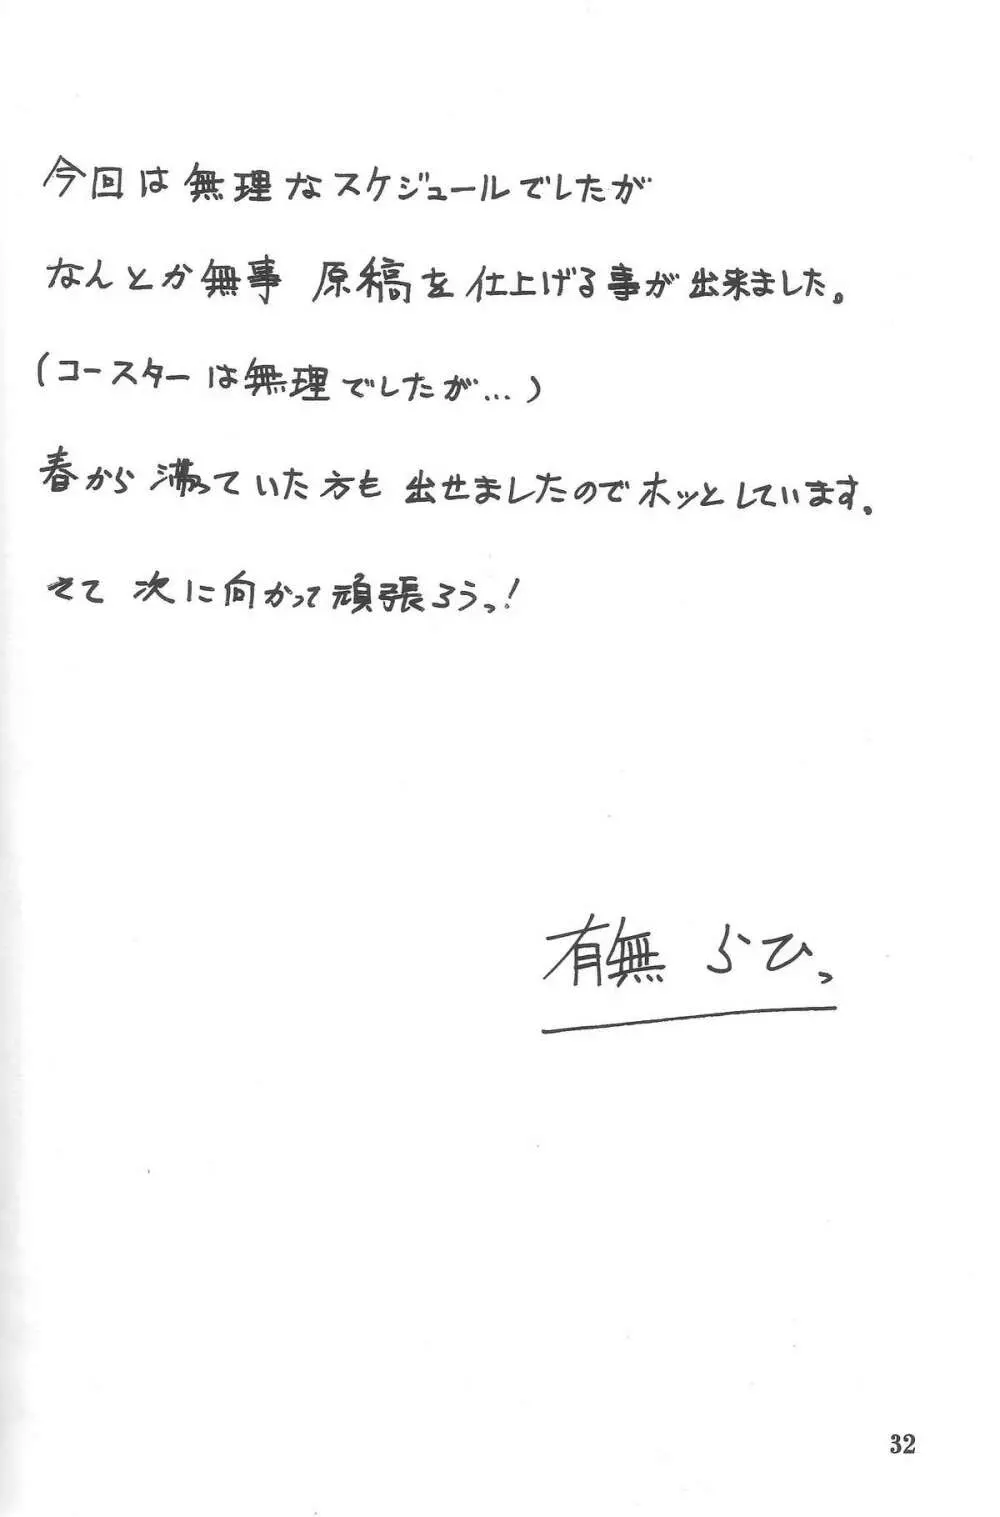 今回は無理なスケジュールでしたが
なんとか無事 原稿を仕上げる事が出来ました。
(コースターは無理でしたが…)
春から滞っていた方も出せましたのでホッとしています。
さて 次に向かって頑張ろうっ!
有無 らひっ
32